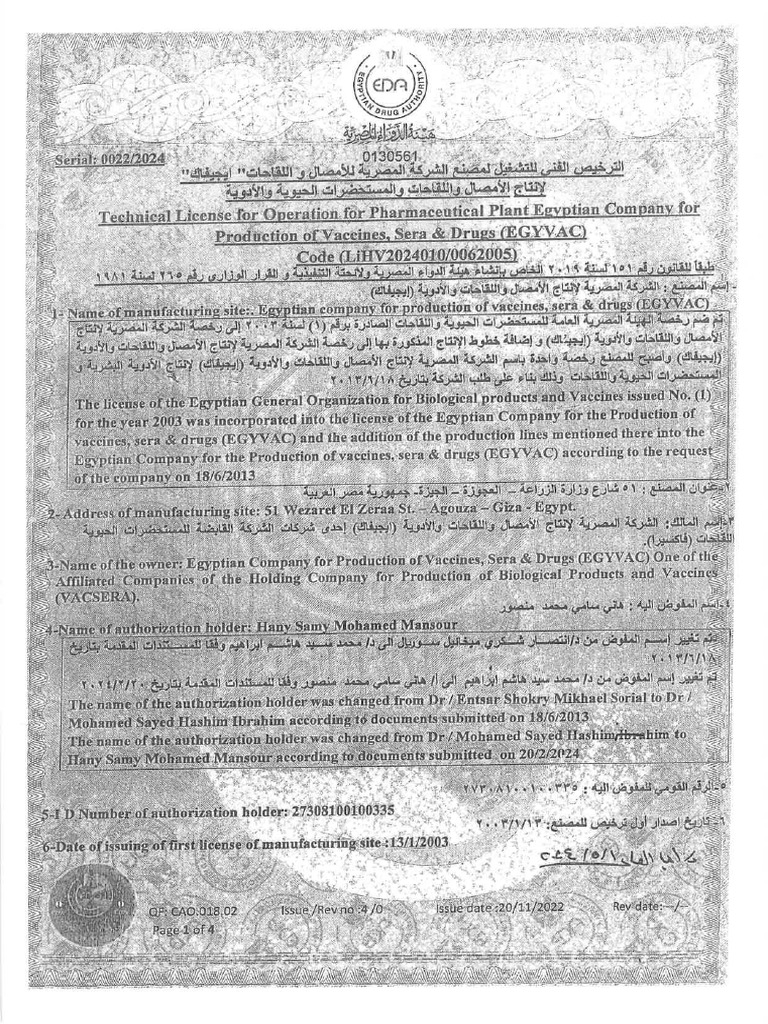 EDA
EGYPTIAN DRUG AUTHORITY
هيئة الدواء المصرية
Serial: 0022/2024
0130561
الترخيص الفني للتشغيل لمصنع الشركة المصرية للأمصال و اللقاحات" ايجيفاك"
لإنتاج الأمصال واللقاحات والمستحضرات الحيوية والأدوية
Technical License for Operation for Pharmaceutical Plant Egyptian Company for
Production of Vaccines, Sera & Drugs (EGYVAC)
Code (LiHV2024010/0062005)
طبقاً للقانون رقم ١٥١ لسنة ٢٠١٩ الخاص بإنشاء هيئة الدواء المصرية ولائحتة التنفيذية و القرار الوزارى رقم ٢٦٥ لسنة ١٩٨١
١- إسم المصنع : الشركة المصرية لإنتاج الأمصال واللقاحات والأدوية (إيجيفاك)
1- Name of manufacturing site:. Egyptian company for production of vaccines, sera & drugs (EGYVAC)
تم ضم رخصة الهيئة المصرية العامة للمستحضرات الحيوية و اللقاحات الصادرة برقم (١) لسنة ٢٠٠٣ إلى رخصة الشركة المصرية لإنتاج
الأمصال واللقاحات والأدوية (إيجيفاك) و إضافة خطوط الإنتاج المذكورة بها إلى رخصة الشركة المصرية لإنتاج الأمصال واللقاحات والأدوية
(إيجيفاك) وأصبح للمصنع رخصة واحدة باسم الشركة المصرية لإنتاج الأمصال واللقاحات والأدوية (إيجيفاك) لإنتاج الأدوية البشرية و
المستحضرات الحيوية واللقاحات وذلك بناء على طلب الشركة بتاريخ ٢٠١٣/٦/١٨
The license of the Egyptian General Organization for Biological products and Vaccines issued No. (1)
for the year 2003 was incorporated into the license of the Egyptian Company for the Production of
vaccines, sera & drugs (EGYVAC) and the addition of the production lines mentioned there into the
Egyptian Company for the Production of vaccines, sera & drugs (EGYVAC) according to the request
of the company on 18/6/2013
٢-عنوان المصنع : ٥١ شارع وزارة الزراعة – العجوزة – الجيزة- جمهورية مصر العربية
2- Address of manufacturing site: 51 Wezaret El Zeraa St. – Agouza – Giza - Egypt.
٣-إسم المالك: الشركة المصرية لإنتاج الأمصال واللقاحات والأدوية (ايجيفاك) إحدى شركات الشركة القابضة للمستحضرات الحيوية
اللقاحات (فاكسيرا).
3-Name of the owner: Egyptian Company for Production of Vaccines, Sera & Drugs (EGYVAC) One of the
Affiliated Companies of the Holding Company for Production of Biological Products and Vaccines
(VACSERA).
٤-إسم المفوض اليه : هاني سامي محمد منصور
4-Name of authorization holder: Hany Samy Mohamed Mansour
تم تغيير إسم المفوض من د/انتصار شكري ميخائيل سوريال الى د/ محمد سيد هاشم ابراهيم وفقا للمستندات المقدمة بتاريخ
٢٠١٣/٦/١٨
تم تغيير إسم المفوض من د/ محمد سيد هاشم إبراهيم الى أ/ هاني سامي محمد منصور وفقا للمستندات المقدمة بتاريخ ٢٠٢٤/٢/٢٠
The name of the authorization holder was changed from Dr / Entsar Shokry Mikhael Sorial to Dr /
Mohamed Sayed Hashim Ibrahim according to documents submitted on 18/6/2013
The name of the authorization holder was changed from Dr / Mohamed Sayed Hashim Ibrahim to
Hany Samy Mohamed Mansour according to documents submitted on 20/2/2024
٥-الرقم القومي للمفوض اليه : ٢٧٣٠٨١٠٠١٠٠٣٣٥
5-I D Number of authorization holder: 27308100100335
٦-تاريخ إصدار أول ترخيص للمصنع: ٢٠٠٣/١/١٣
6-Date of issuing of first license of manufacturing site :13/1/2003
QF: CAO.018.02
Issue /Rev no :4 /0
Issue date :20/11/2022
Rev date:—/-
Page 1 of 4